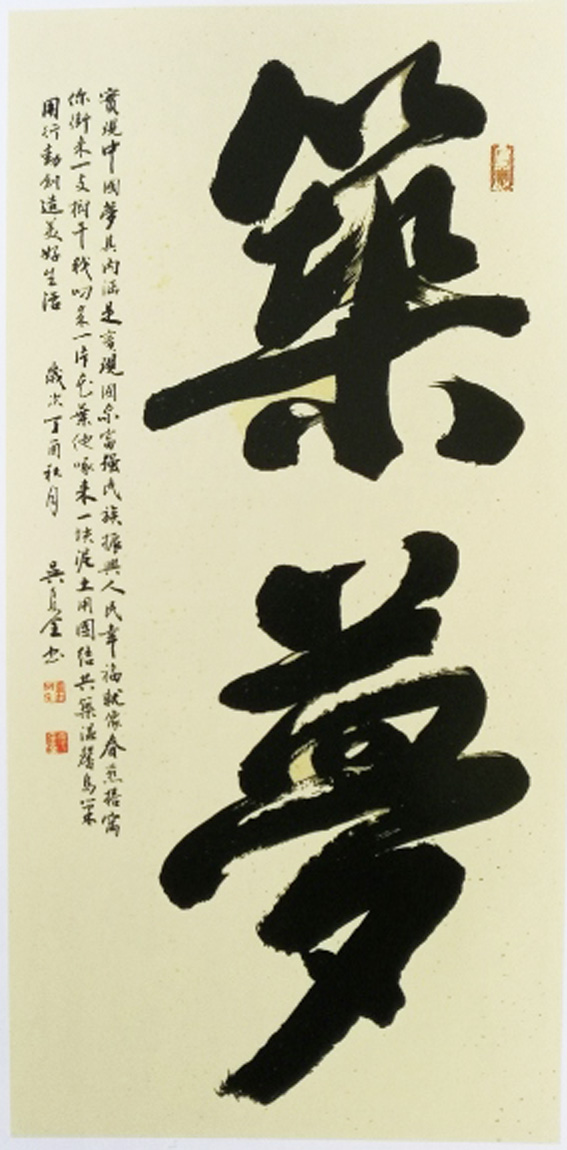 築夢
實現中國夢其內涵是實現國家富強民族振興人民幸福就像春燕搭窩
你銜來一支樹干我叼來一片花葉他啄來一塊泥土用團結共築溫馨鳥巢
用行動創造美好生活 歲次丁酉秋月 吳